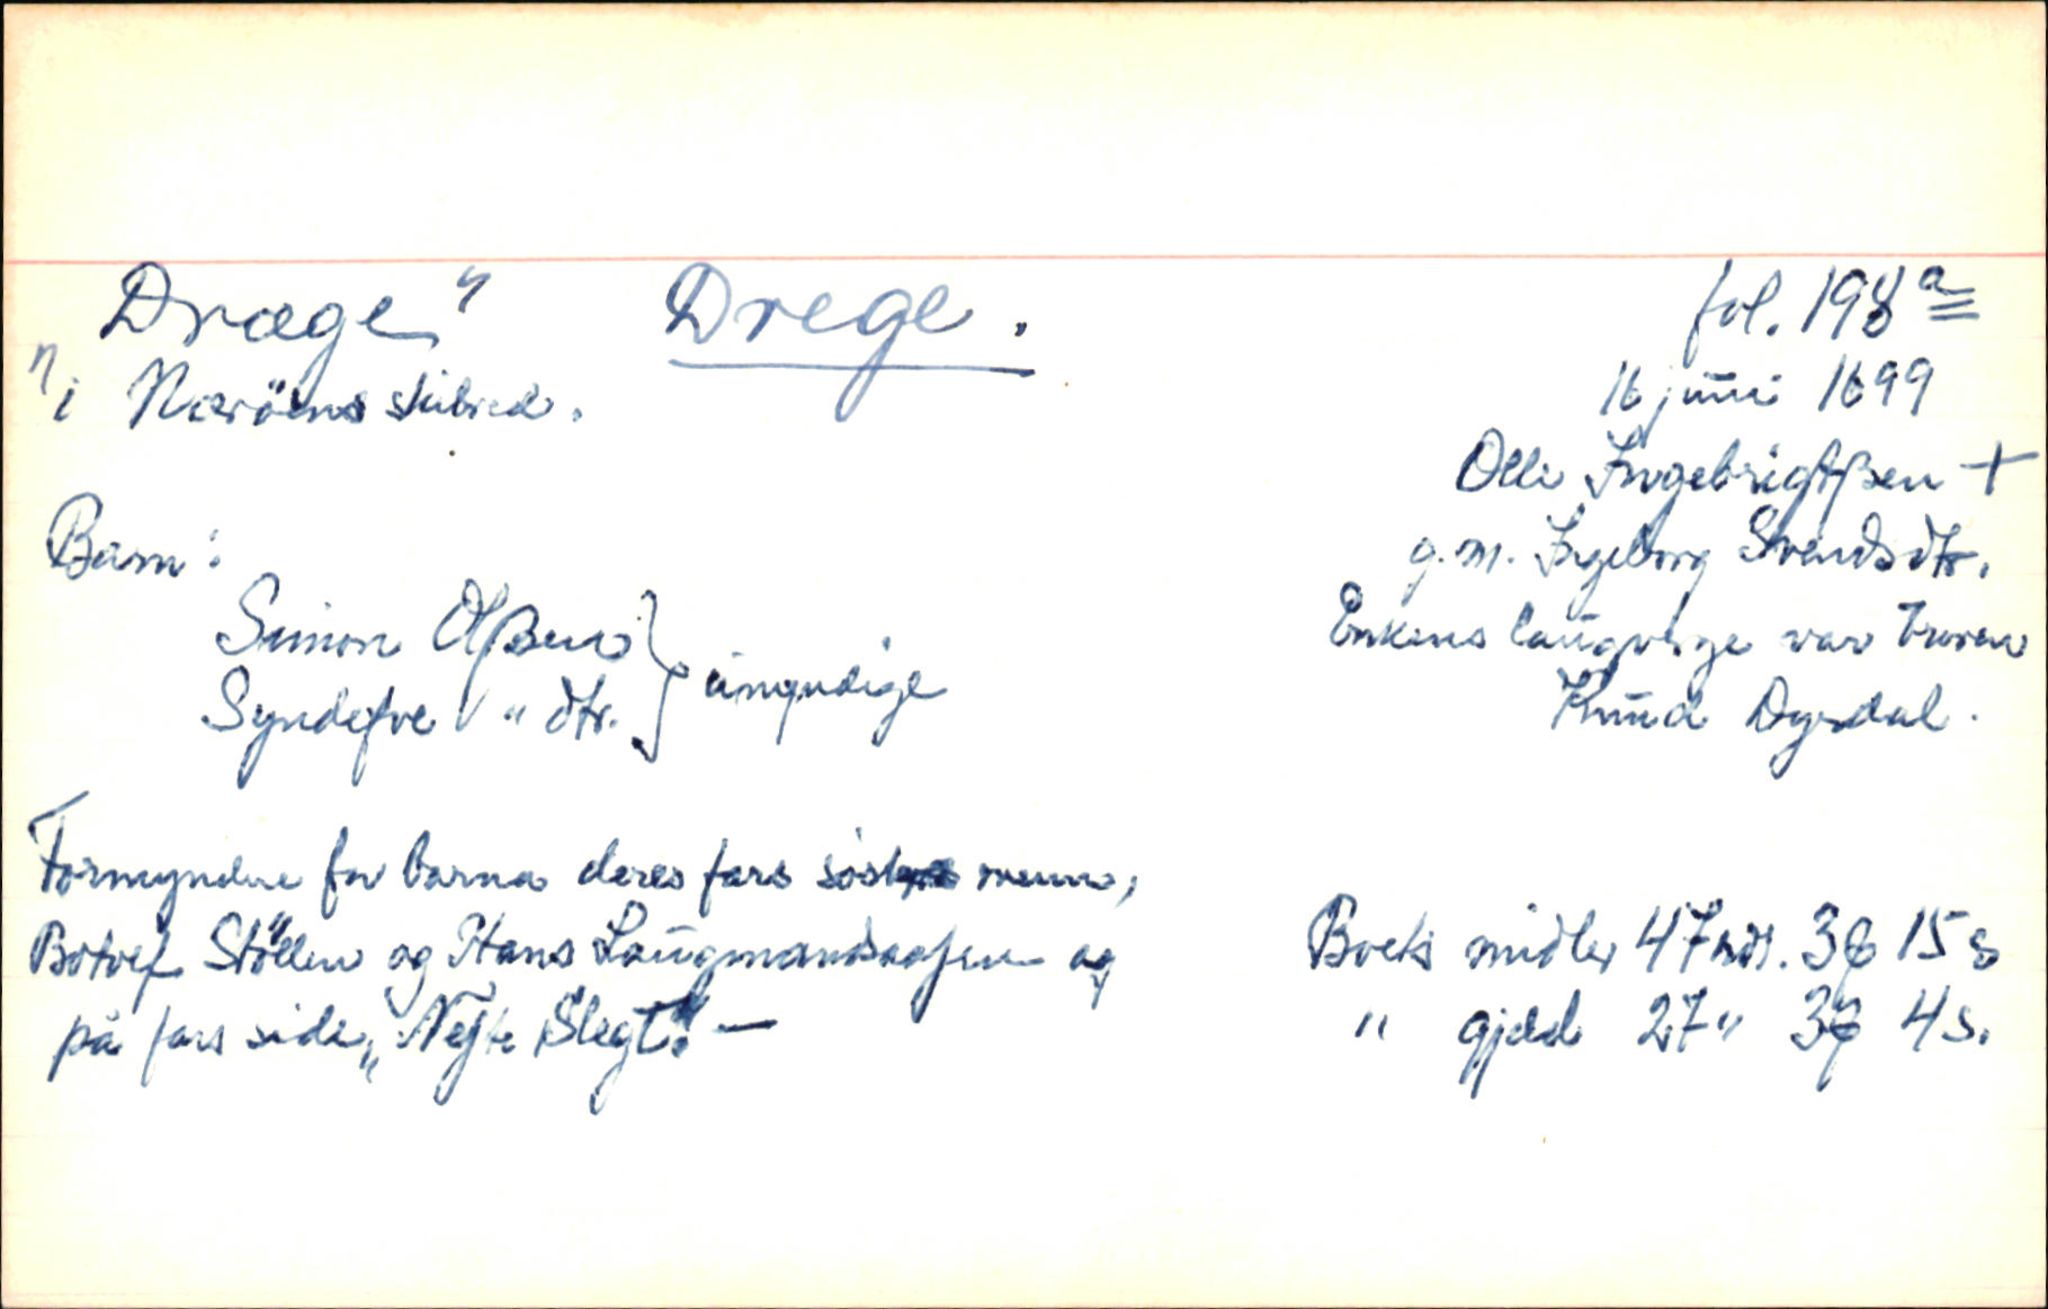 "Dræge" Drege. fol. 198 a
i Næröens skibred. 16 juni 1699
Olle Ingebrigtßen +
Barn: g.m. Ingeborg Svendsdtr.
Simon Olßen Enkens laugverge var broren
Syndefve " dtr. } umyndige Knud Dyrdal.
Formyndere for barna deres fars søsters menn,
Botvef Stöllen og Hans Laugmandsaasen og Boets midler 47 rdr. 3 ꝸ 15 s
på fars side „Neste Slegt." — " gjeld 27 " 3 ꝸ 4 s.